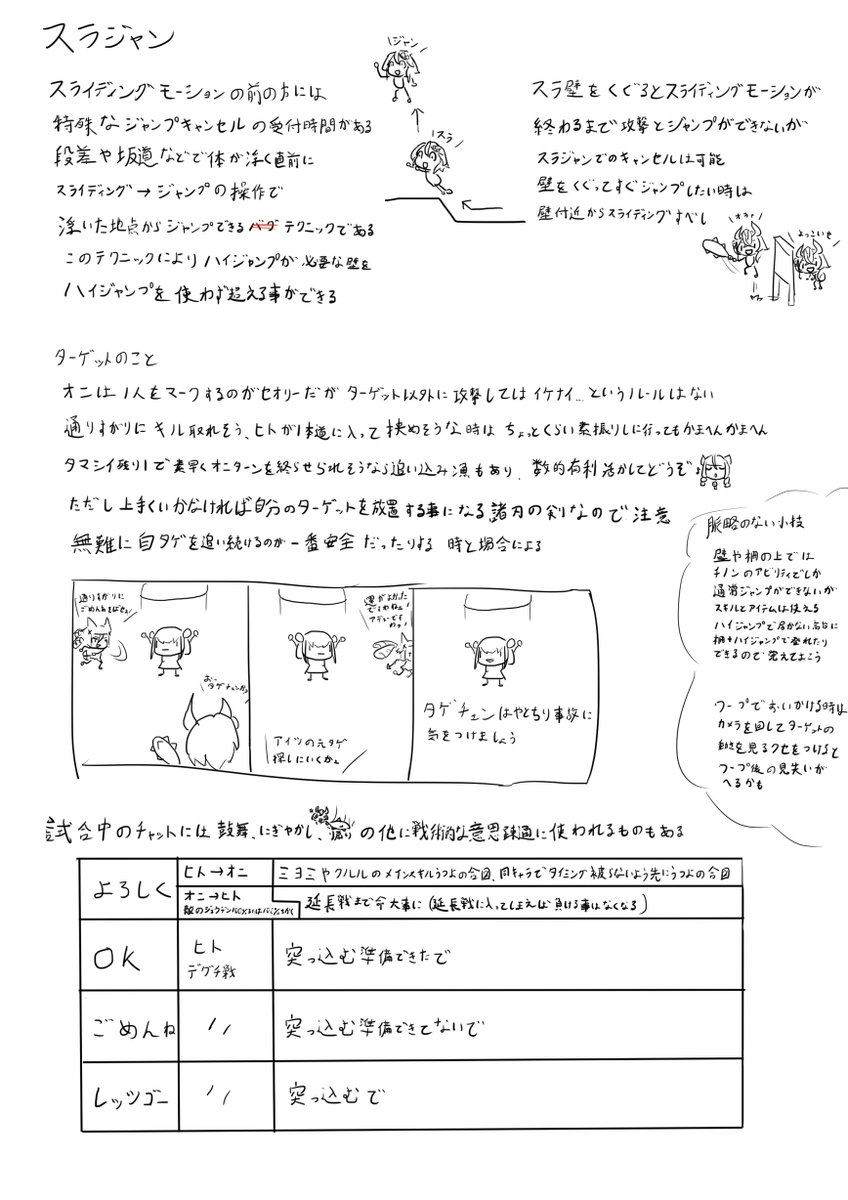 スラジャン
スライディングモーションの前の方には
特殊なジャンプキャンセルの受付時間がある
段差や坂道などで体が浮く直前に
スライディング→ジャンプの操作で
浮いた地点からジャンプできるバグテクニックである
このテクニックによりハイジャンプが必要な壁を
ハイジャンプを使わず超える事ができる
ジャン
スラ
スラ壁をくぐるとスライディングモーションが
終わるまで攻撃とジャンプができないが
スラジャンでのキャンセルは可能
壁をくぐってすぐジャンプしたい時は
壁付近からスライディングすべし
よっこいせ
ターゲットのこと
オニは1人をマークするのがセオリーだがターゲット以外に攻撃してはイケナイ…というルールはない
通りすがりにキル取れそう、ヒトが1本道に入って挟めそうな時はちょっとくらい素振りしに行ってもかまへんかまへん
タマシイ残り1で素早くオニターンを終らせられそうなら追い込み漁もあり、数的有利活かしてどうぞ
ただし上手くいかなければ自分のターゲットを放置する事になる諸刃の剣なので注意
無難に自タゲを追い続けるのが一番安全だったりする 時と場合による
通りすがりに
ごめんあそばせ
おー
タゲチェンか
運がよかった
ですわね
アイツの元タゲ
探しにいくか
タゲチェンはやとちり事故に
気をつけましょう
脈略のない小技
壁や柵の上では
チノンのアビリティでしか
通常ジャンプができないが
スキルとアイテムは使える
ハイジャンプで届かない高台に
柵+ハイジャンプで登れたり
できるので覚えておこう
ワープでおいかける時は
カメラを回してターゲットの
動きを見るクセをつけると
ワープ後の見失いが
へるかも
試合中のチャットには鼓舞、にぎやかし、の他に戦術的な意思疎通に使われるものもある
よろしく
ヒト→オニ
ミヨミやクルルのメインスキルうつよの合図、同キャラでタイミング被らないよう先にうつよの合図
オニ→ヒト
延長戦まで今大事に(延長戦に入ってしまえば負ける事はなくなる)
OK
ヒト
デグチ戦
突っ込む準備できたで
ごめんね
〃
突っ込む準備できてないで
レッツゴー
〃
突っ込むで